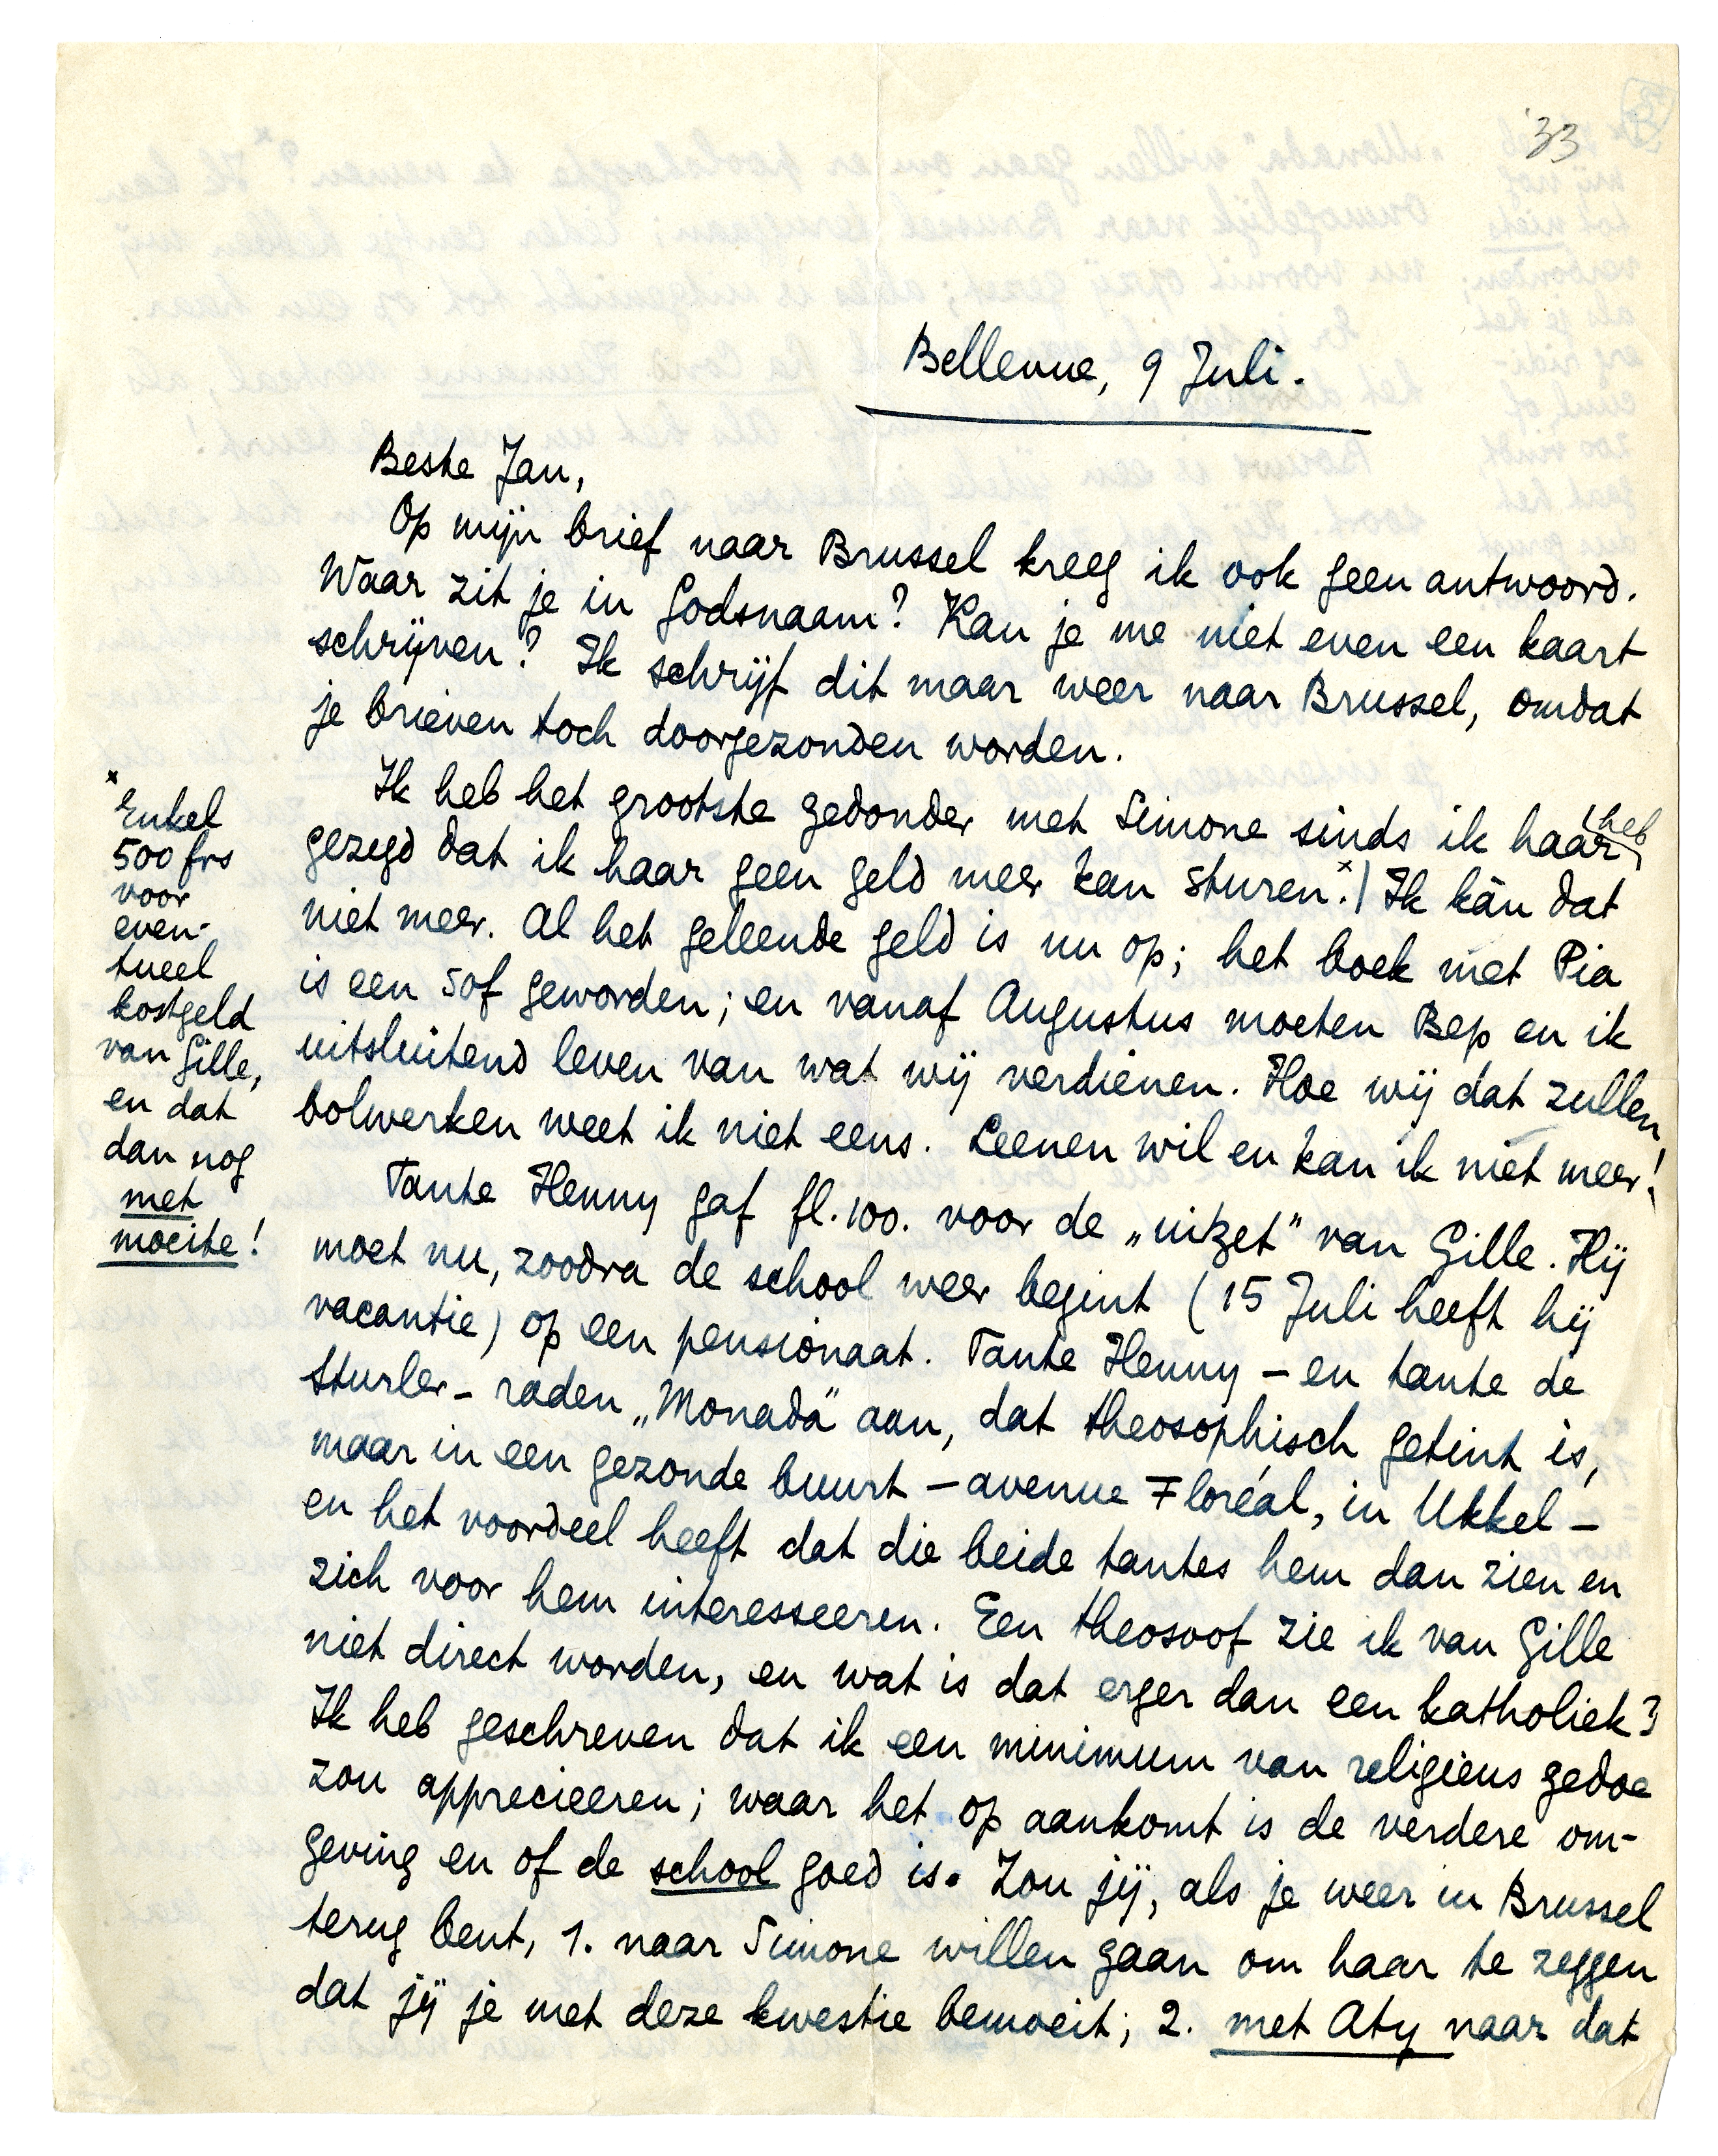 '33
Bellevue, 9 Juli.
Beste Jan,
Op mijn brief naar Brussel kreeg ik ook geen antwoord.
Waar zit je in Godsnaam? Kan je me niet even een kaart
schrijven? Ik schrijf dit maar weer naar Brussel, omdat
je brieven toch doorgezonden worden.
Ik heb het grootste gedonder met Simone sinds ik haar heb
gezegd dat ik haar geen geld meer kan sturen.x) Ik kàn dat
niet meer. Al het geleende geld is nu op; het boek met Pia
is een sof geworden; en vanaf Augustus moeten Bep en ik
uitsluitend leven van wat wij verdienen. Hoe wij dat zullen
bolwerken weet ik niet eens. Leenen wil en kan ik niet meer!
Tante Henny gaf fl. 100. voor de „uitzet" van Gille. Hij
moet nu, zoodra de school weer begint (15 Juli heeft hij
vacantie) op een pensionaat. Tante Henny – en tante de
Sturler – raden „Monada" aan, dat theosophisch getint is,
maar in een gezonde buurt – avenue Floréal, in Ukkel –
en het voordeel heeft dat die beide tantes hem dan zien en
zich voor hem interesseeren. Een theosoof zie ik van Gille
niet direct worden, en wat is dat erger dan een katholiek?
Ik heb geschreven dat ik een minimum van religieus gedoe
zou apprecieeren; waar het op aankomt is de verdere om-
geving en of de school goed is. Zou jij, als je weer in Brussel
terug bent, 1. naar Simone willen gaan om haar te zeggen
dat jij je met deze kwestie bemoeit; 2. met Aty naar dat
x
Enkel
500 frs
voor
even-
tueel
kostgeld
van Gille,
en dat
dan nog
met
moeite!